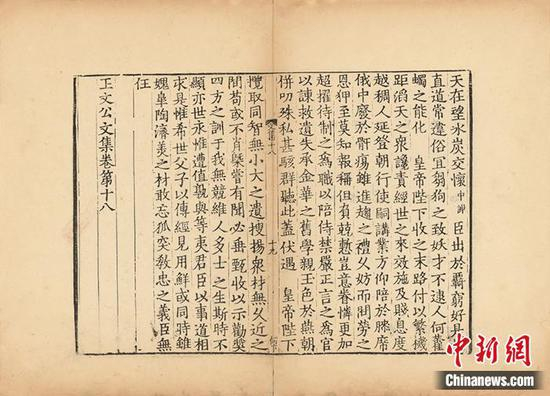 天在望氷炭交懷中謝 臣出於覊窮好是
直道常違俗宜芻狗之致妖才不逮人何蠧
蠋之能化 皇帝陛下收之末路付以繁機
距滔天之衆讒責經世之來效施及賤息度
越稠人延登朝行使嗣講業方仰陪於勝席
俄中廢於骭瘍雖進趨之禮乆妨而問勞之
恩狎至莫知報稱但負兢慙豈意眷憐更加
超擢待制之爲職以陪侍禁嚴正言之爲官
以諫救遺失承金華之舊學親玉色於燕朝
併叨殊私甚駭群聽此蓋伏遇 皇帝陛下
十八
十九
攬取同智無小大之遺搜揚衆材無乆近之
間苟或不肖槩嘗有聞必垂甄收以示勸奬
四方之訓于我無競維人多士之生斯時不
顯亦世永惟遭值曷與等夷君臣以事道相
求是惟希世父子以傳經見用鮮或同時雖
媿臯陶濟美之材敢忘狐突敎忠之義臣無
任
王文公文集卷第十八
中新網
Chinanews.com